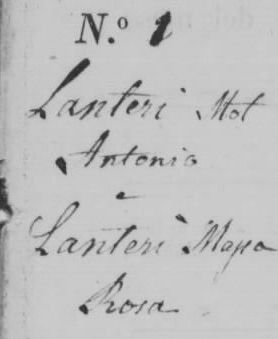 N.º 1
Lanteri Mot
Antonio
e
Lanteri Mapa
Rosa